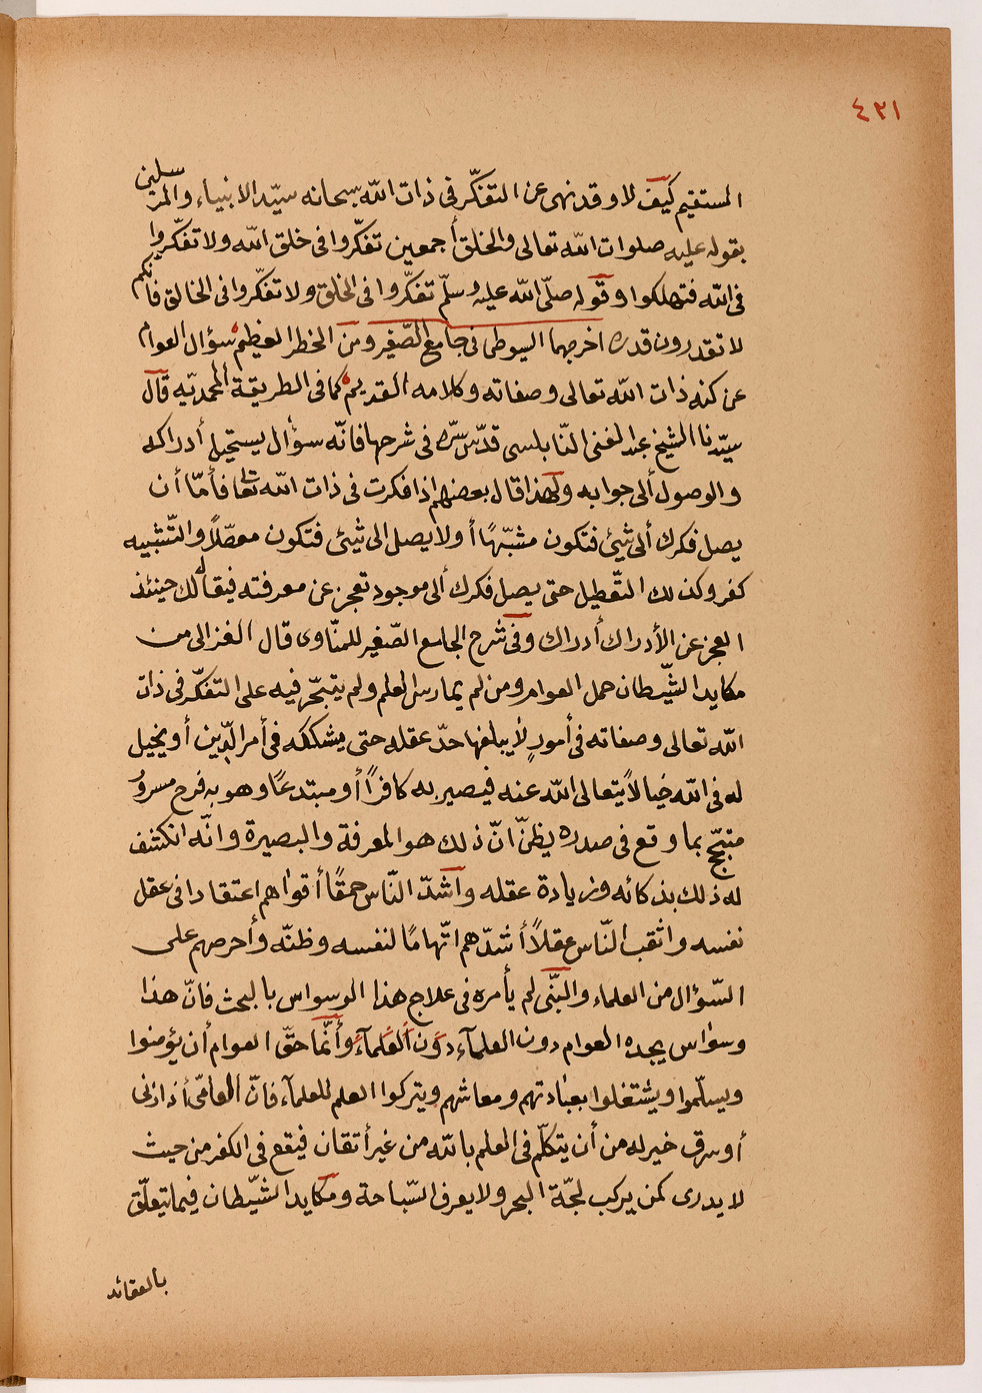 ٤٢١
المستقيم كيف لا وقد نهى عن التفكّر فى ذات اللّه سبحانه سيّد الانبياء والمرسلين
بقوله عليه صلوات اللّه تعالى والخلق أجمعين تفكّروا فى خلق اللّه ولا تفكّروا
فى اللّه فتهلكوا وقوله صلّى اللّه عليه وسلّم تفكّروا فى الخلق ولا تفكّروا فى الخالق فانكم
لا تقدرون قدره اخرجهما السيوطى فى جامع الصّغير ومن الخطر العظيم سؤال العوام
عن كنه ذات اللّه تعالى وصفاته وكلامه القديم كما فى الطريقة المحمديّه قال
سيّدنا الشيخ عبد الغنى النّابلسى قدّس سرّه فى شرحها فانّه سؤال يستحيل أدراكه
والوصول ألى جوابه ولهذا قال بعضهم اذا فكرت فى ذات اللّه تعالى فأمّا أن
يصل فكرك ألى شيئ فتكون مشبّهًا أو لا يصل الى شيئ فتكون معطّلاً والتّشبيه
كفر وكذلك التّعطيل حتى يصل فكرك ألى موجود تعجز عن معرفته فيقال لك حينئذ
العجز عن الأدراك أدراك وفى شرح الجامع الصّغير للمنّاوى قال الغزالى من
مكايد الشّيطان حمل العوام ومن لم يمارس العلم ولم يتبحّر فيه على التفكّر فى ذات
اللّه تعالى وصفاته فى أمورٍ لا يبلغها حدّ عقله حتى يشككه فى أمر الدّين أو يخيل
له فى اللّه خيالاً يتعالى اللّه عنه فيصير به كافرًا أو مبتدعًا وهو به فرح مسرورٌ
متبجّح بما وقع فى صدره يظنّ انّ ذلك هو المعرفة والبصيرة وانّه انكشف
له ذلك بذكائه وزيادة عقله وأشدّ النّاس حمقًا أقواهم اعتقادا فى عقل
نفسه واثقب النّاس عقلاً أشدّهم اتّهامًا لنفسه وظنّه وأحرصهم على
السّؤال من العلماء والنبّى لم يأمره فى علاج هذا الوسواس بالبحث فانّ هذا
وسواس يجده العوام دون العلمآء دون العلمآء وأنّما حقّ العوام أن يؤمنوا
ويسلّموا ويشتغلوا بعبادتهم ومعاشهم ويتركوا العلم للعلمآء فانّ العامّى أذا زنى
أو سرق خير له من أن يتكلّم فى العلم باللّه من غير أتقان فيقع فى الكفر من حيث
لا يدرى كمن يركب لجّة البحر ولا يعرف السّباحة ومكايد الشّيطان فيما يتعلّق
بالعقائد